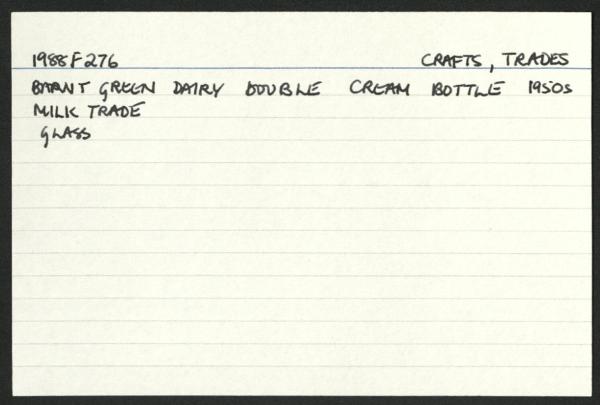 1988F276 CRAFTS, TRADES
BARNT GREEN DAIRY DOUBLE CREAM BOTTLE 1950s
MILK TRADE
GLASS